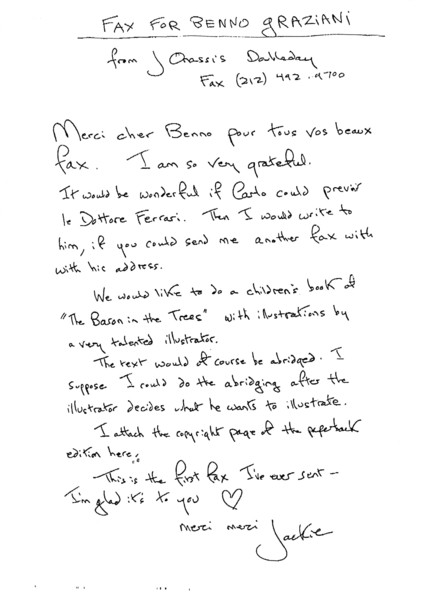 FAX FOR BENNO GRAZIANI
from J Onassis Doubleday
Fax (212) 492 · 9700
Merci cher Benno pour tous vos beaux
fax. I am so very grateful.
It would be wonderful if Carlo could prévoir
le Dottore Ferrari. Then I would write to
him, if you could send me another fax with
with his address.
We would like to do a children's book of
"The Baron in the Trees" with illustrations by
a very talented illustrator.
The text would of course be abridged. I
suppose I could do the abridging after the
illustrator decides what he wants to illustrate.
I attach the copyright page of the paperback
edition here.
This is the first fax I've ever sent —
I'm glad it's to you ♡
merci merci
Jackie